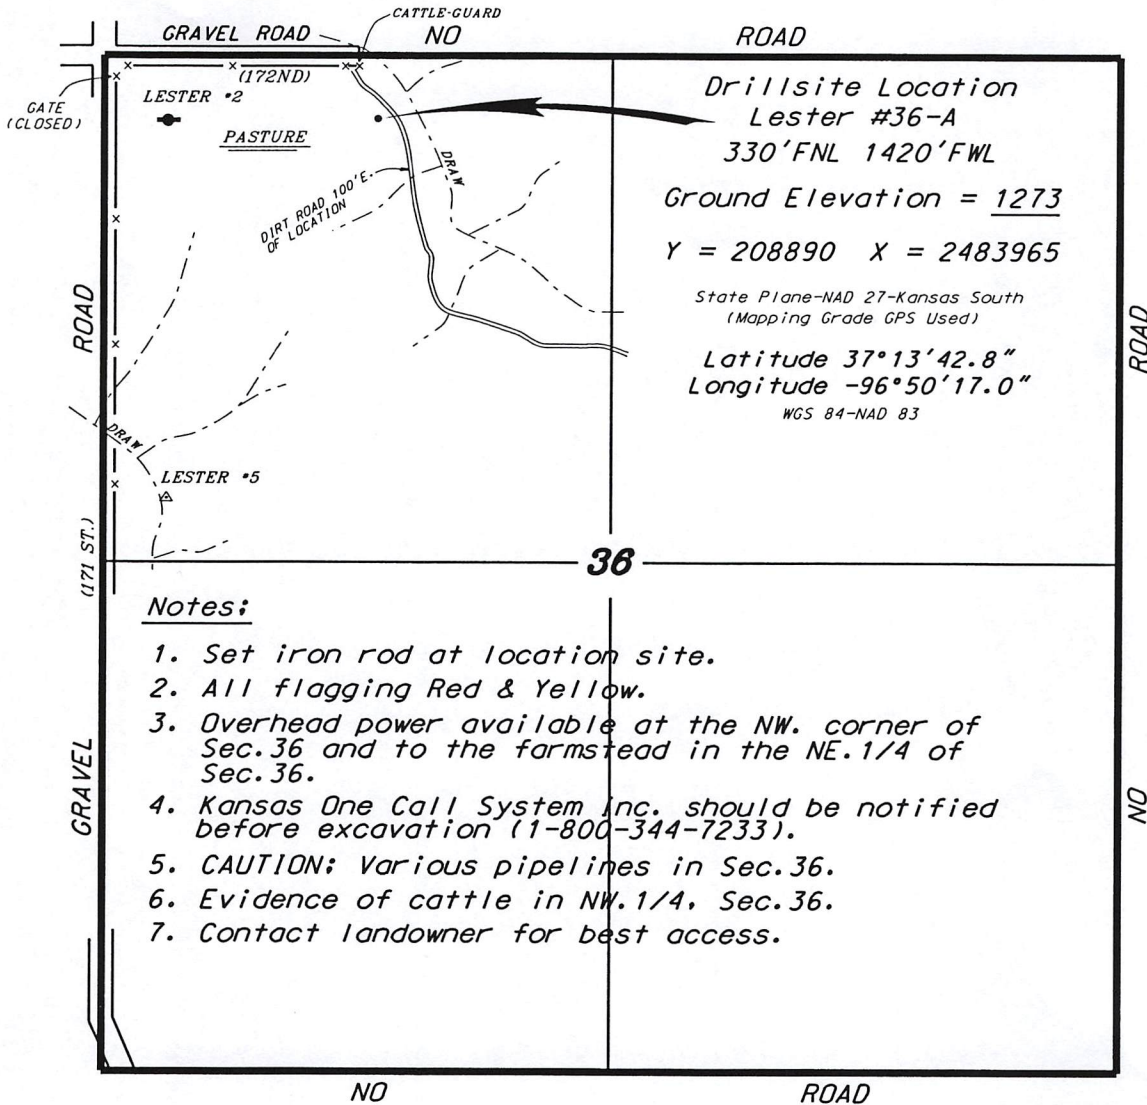 CATTLE-GUARD
GRAVEL ROAD
NO
ROAD
(172ND)
GATE
(CLOSED)
LESTER #2
PASTURE
DRAW
DIRT ROAD 100'E.
OF LOCATION
Drillsite Location
Lester #36-A
330'FNL 1420'FWL
Ground Elevation = 1273
Y = 208890 X = 2483965
State Plane-NAD 27-Kansas South
(Mapping Grade GPS Used)
Latitude 37°13'42.8"
Longitude -96°50'17.0"
WGS 84-NAD 83
ROAD
ROAD
DRAW
LESTER #5
(171 ST.)
36
Notes:
1. Set iron rod at location site.
2. All flagging Red & Yellow.
3. Overhead power available at the NW. corner of
Sec.36 and to the farmstead in the NE.1/4 of
Sec.36.
4. Kansas One Call System Inc. should be notified
before excavation (1-800-344-7233).
5. CAUTION: Various pipelines in Sec.36.
6. Evidence of cattle in NW.1/4, Sec.36.
7. Contact landowner for best access.
GRAVEL
NO
NO
ROAD